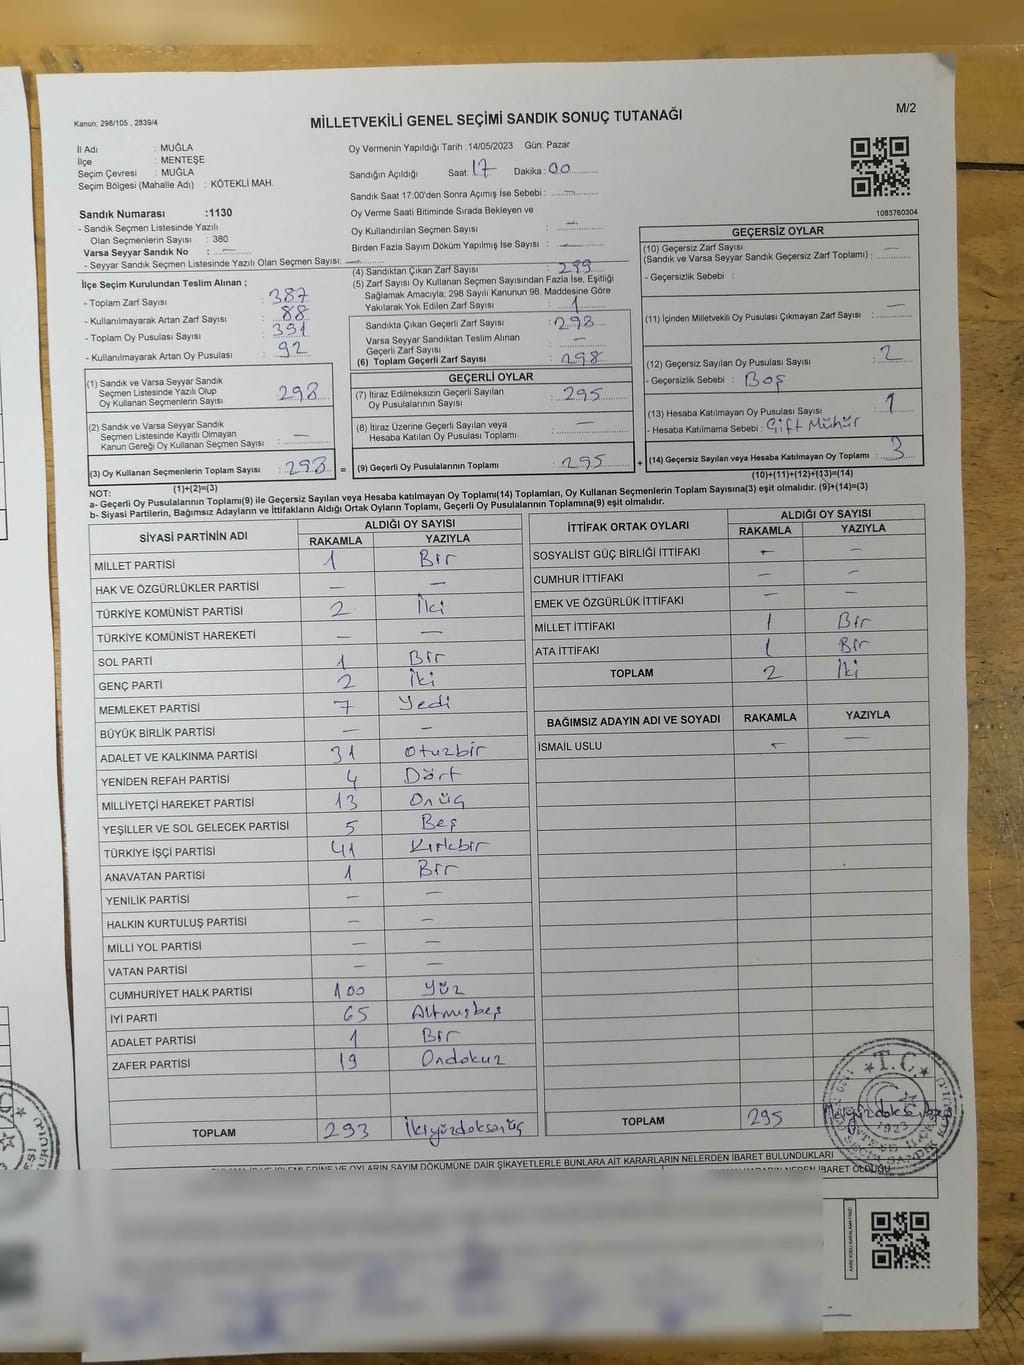 Kanun; 298/105 , 2839/4
MİLLETVEKİLİ GENEL SEÇİMİ SANDIK SONUÇ TUTANAĞI
M/2
İl Adı : MUĞLA
İlçe : MENTEŞE
Seçim Çevresi : MUĞLA
Seçim Bölgesi (Mahalle Adı) : KÖTEKLİ MAH.
Sandık Numarası :1130
- Sandık Seçmen Listesinde Yazılı
Olan Seçmenlerin Sayısı : 380
Varsa Seyyar Sandık No : —
- Seyyar Sandık Seçmen Listesinde Yazılı Olan Seçmen Sayısı: —
Oy Vermenin Yapıldığı Tarih :14/05/2023 Gün: Pazar
Sandığın Açıldığı Saat: 17 Dakika: 00
Sandık Saat 17:00'den Sonra Açımış İse Sebebi : —
Oy Verme Saati Bitiminde Sırada Bekleyen ve
Oy Kullandırılan Seçmen Sayısı : —
Birden Fazla Sayım Döküm Yapılmış İse Sayısı : —
1083760304
İlçe Seçim Kurulundan Teslim Alınan ;
- Toplam Zarf Sayısı : 387
- Kullanılmayarak Artan Zarf Sayısı : 88
- Toplam Oy Pusulası Sayısı : 391
- Kullanılmayarak Artan Oy Pusulası : 92
(1) Sandık ve Varsa Seyyar Sandık
Seçmen Listesinde Yazılı Olup
Oy Kullanan Seçmenlerin Sayısı : 298
(2) Sandık ve Varsa Seyyar Sandık
Seçmen Listesinde Kayıtlı Olmayan
Kanun Gereği Oy Kullanan Seçmen Sayısı : —
(3) Oy Kullanan Seçmenlerin Toplam Sayısı : 298 =
(1)+(2)=(3)
(4) Sandıktan Çıkan Zarf Sayısı : 299
(5) Zarf Sayısı Oy Kullanan Seçmen Sayısından Fazla İse, Eşitliği
Sağlamak Amacıyla; 298 Sayılı Kanunun 98. Maddesine Göre
Yakılarak Yok Edilen Zarf Sayısı : 1
Sandıkta Çıkan Geçerli Zarf Sayısı : 298
Varsa Seyyar Sandıktan Teslim Alınan
Geçerli Zarf Sayısı : —
(6) Toplam Geçerli Zarf Sayısı : 298
GEÇERLİ OYLAR
(7) İtiraz Edilmeksizin Geçerli Sayılan
Oy Pusulalarının Sayısı : 295
(8) İtiraz Üzerine Geçerli Sayılan veya
Hesaba Katılan Oy Pusulası Toplamı : —
(9) Geçerli Oy Pusulalarının Toplamı : 295 +
GEÇERSİZ OYLAR
(10) Geçersiz Zarf Sayısı —
(Sandık ve Varsa Seyyar Sandık Geçersiz Zarf Toplamı) :
- Geçersizlik Sebebi :
(11) İçinden Milletvekili Oy Pusulası Çıkmayan Zarf Sayısı : —
(12) Geçersiz Sayılan Oy Pusulası Sayısı : 2
- Geçersizlik Sebebi : Boş
(13) Hesaba Katılmayan Oy Pusulası Sayısı : 1
- Hesaba Katılmama Sebebi : Çift Mühür
(14) Geçersiz Sayılan veya Hesaba Katılmayan Oy Toplamı : 3
(10)+(11)+(12)+(13)=(14)
NOT:
a- Geçerli Oy Pusulalarının Toplamı(9) ile Geçersiz Sayılan veya Hesaba katılmayan Oy Toplamı(14) Toplamları, Oy Kullanan Seçmenlerin Toplam Sayısına(3) eşit olmalıdır. (9)+(14)=(3)
b- Siyasi Partilerin, Bağımsız Adayların ve İttifakların Aldığı Ortak Oyların Toplamı, Geçerli Oy Pusulalarının Toplamına(9) eşit olmalıdır.
SİYASİ PARTİNİN ADI ALDIĞI OY SAYISI
RAKAMLA YAZIYLA
MİLLET PARTİSİ 1 Bir
HAK VE ÖZGÜRLÜKLER PARTİSİ — —
TÜRKİYE KOMÜNİST PARTİSİ 2 İki
TÜRKİYE KOMÜNİST HAREKETİ — —
SOL PARTİ 1 Bir
GENÇ PARTİ 2 İki
MEMLEKET PARTİSİ 7 Yedi
BÜYÜK BİRLİK PARTİSİ — —
ADALET VE KALKINMA PARTİSİ 31 Otuzbir
YENİDEN REFAH PARTİSİ 4 Dört
MİLLİYETÇİ HAREKET PARTİSİ 13 Onüç
YEŞİLLER VE SOL GELECEK PARTİSİ 5 Beş
TÜRKİYE İŞÇİ PARTİSİ 41 Kırkbir
ANAVATAN PARTİSİ 1 Bir
YENİLİK PARTİSİ — —
HALKIN KURTULUŞ PARTİSİ — —
MİLLİ YOL PARTİSİ — —
VATAN PARTİSİ — —
CUMHURİYET HALK PARTİSİ 100 Yüz
İYİ PARTİ 65 Altmışbeş
ADALET PARTİSİ 1 Bir
ZAFER PARTİSİ 19 Ondokuz
TOPLAM 293 İkiyüzdoksanüç
İTTİFAK ORTAK OYLARI ALDIĞI OY SAYISI
RAKAMLA YAZIYLA
SOSYALİST GÜÇ BİRLİĞİ İTTİFAKI — —
CUMHUR İTTİFAKI — —
EMEK VE ÖZGÜRLÜK İTTİFAKI — —
MİLLET İTTİFAKI 1 Bir
ATA İTTİFAKI 1 Bir
TOPLAM 2 İki
BAĞIMSIZ ADAYIN ADI VE SOYADI RAKAMLA YAZIYLA
İSMAİL USLU — —
TOPLAM 295
T.C.
1923